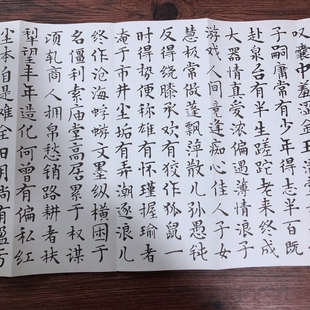 叹囊中羞涩金玉满堂
子嗣庸常有少年得志半百既
赴泉台有半生蹉跎老来终成
大器情真爱浓偏遇薄情浪子
游戏人间竟逢痴心佳人子女
慧极常做蓬飘萍散儿孙愚钝
反得绕膝承欢有狡作狐鼠一
时得势便称雄有怀瑾握瑜者
淹于市井尘垢有弄潮逐浪儿
终作沧海蜉蝣文墨纵横困于
名僵利索庙堂高居累于权谋
顷轧商人拥帛愁销路耕者扶
犁望丰年造化何曾有偏私红
尘本自是难全日月尚有盈亏